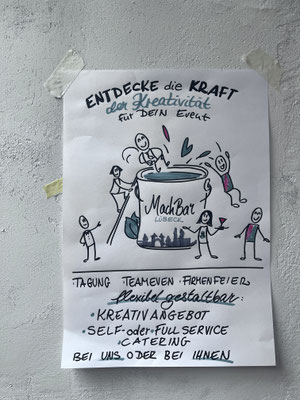 ENTDECKE die KRAFT
der Kreativität
für DEIN Event
MachBar
LÜBECK
·TAGUNG·TEAMEVEN·FIRMENFEIER
flexibel gestaltbar:
·KREATIVANGEBOT
·SELF- oder FULL SERVICE
·CATERING
BEI UNS ODER BEI IHNEN